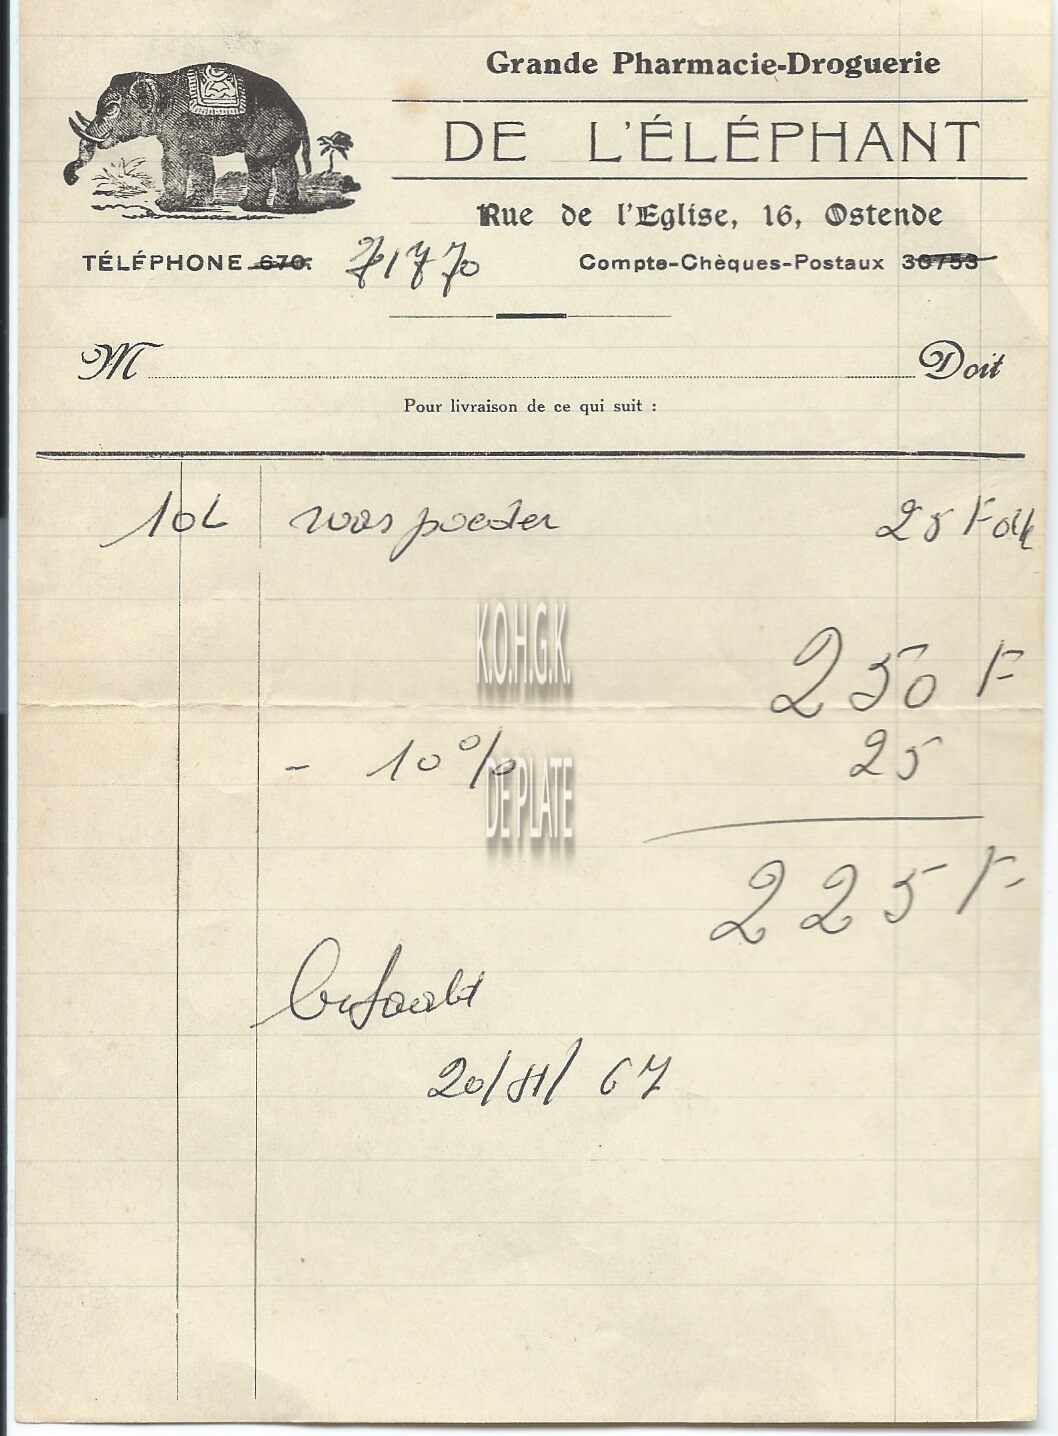 Grande Pharmacie-Droguerie
DE L'ÉLÉPHANT
Rue de l'Eglise, 16, Ostende
TÉLÉPHONE 670. 71770 Compte-Chèques-Postaux 30753
M Doit
Pour livraison de ce qui suit :
10L was poeder 25 F
250 F
- 10% 25
225 F
betaald
20/11/67
K.O.H.G.K.
DE PLATE